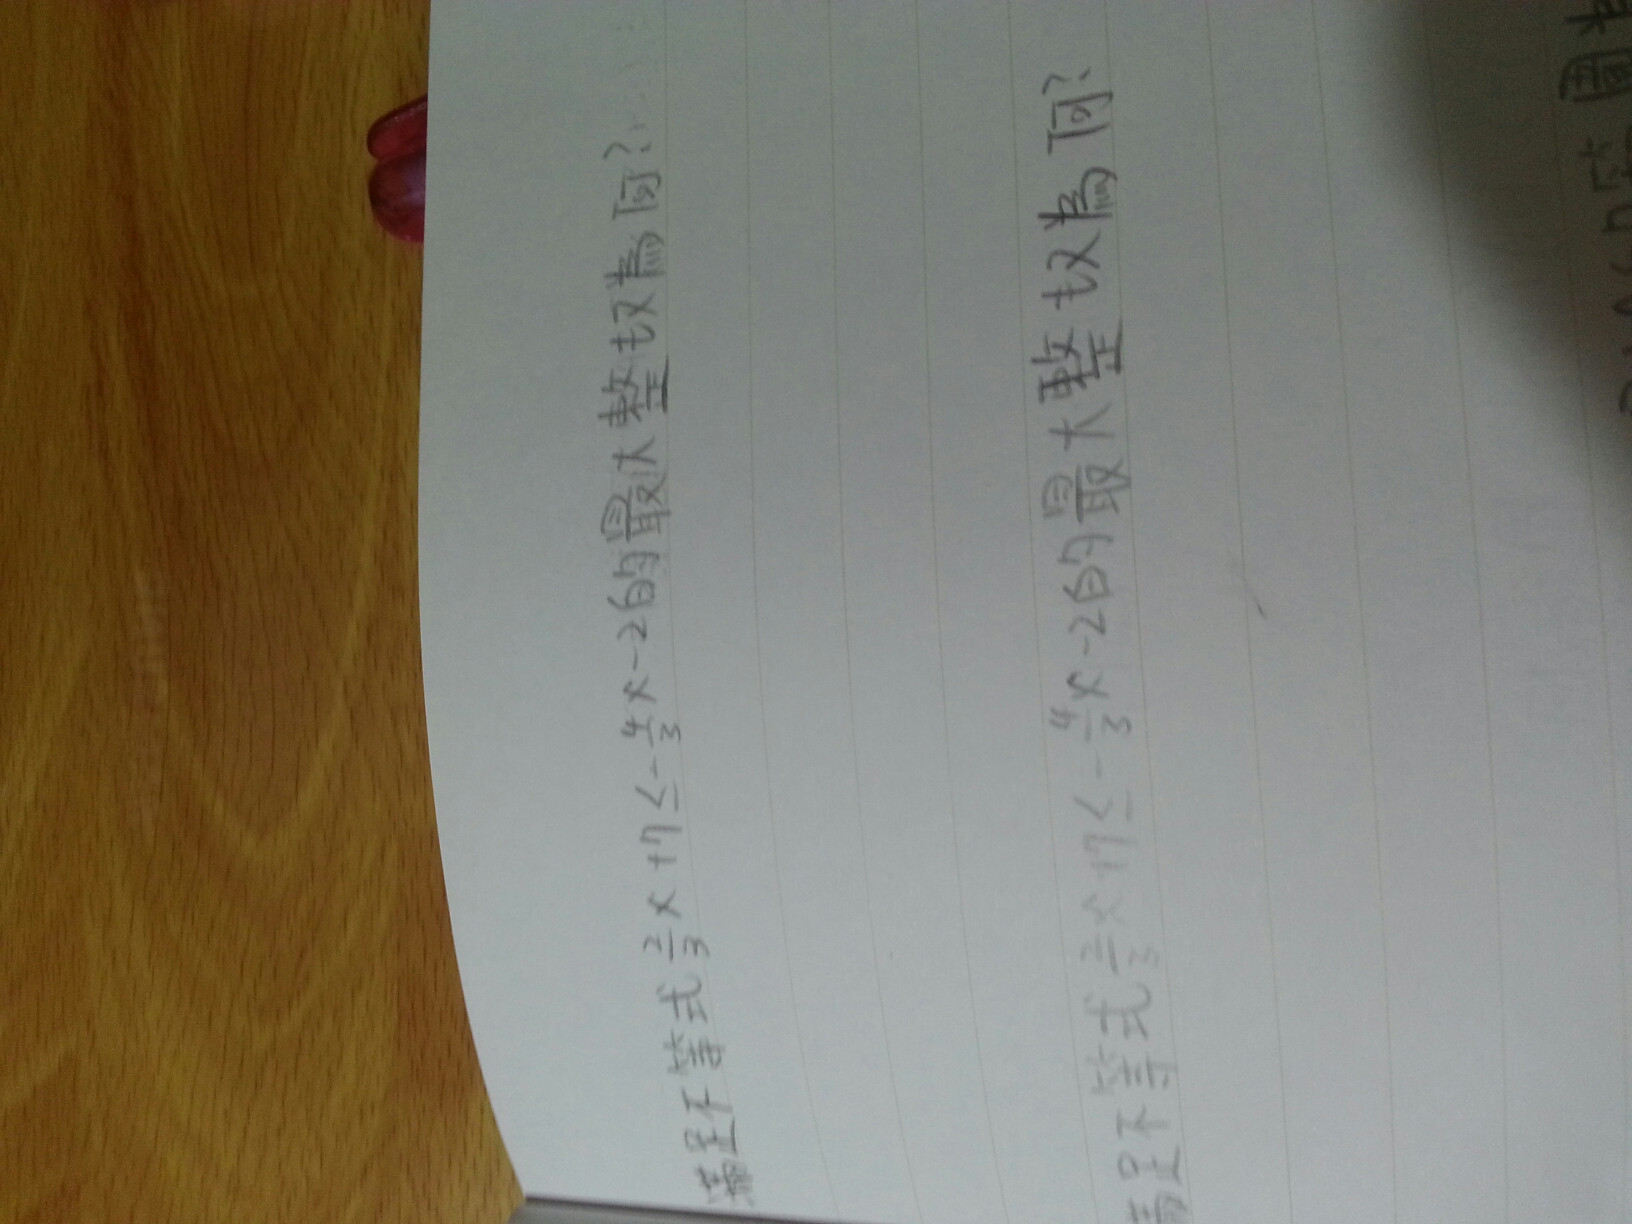 滿足不等式 2/3 x+7≤-4/3 x-2的最大整数為何?
滿足不等式 2/3 x+7≤-4/3 x-2的最大整数為何?